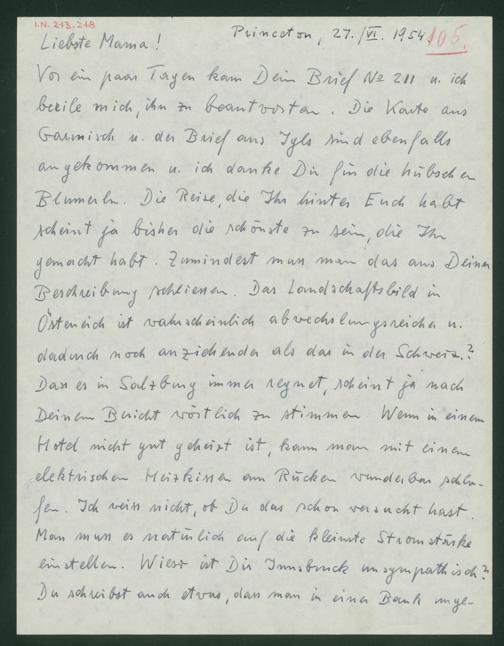 I.N. 213.218
Princeton, 27./VI. 1954
105.
Liebste Mama!
Vor ein paar Tagen kam Dein Brief No 211 u. ich
beeile mich, ihn zu beantworten. Die Karte aus
Garmisch u. der Brief aus Igls sind ebenfalls
angekommen u. ich danke Dir für die hübschen
Blumerln. Die Reise, die Ihr hinter Euch habt
scheint ja bisher die schönste zu sein, die Ihr
gemacht habt. Zumindest muss man das aus Deiner
Beschreibung schliessen. Das Landschaftsbild in
Österreich ist wahrscheinlich abwechslungsreicher u.
dadurch noch anziehender als das in der Schweiz.?
Dass es in Salzburg immer regnet, scheint ja nach
Deinem Bericht wörtlich zu stimmen. Wenn in einem
Hotel nicht gut geheizt ist, kann man mit einem
elektrischen Heizkissen am Rücken wunderbar schla-
fen. Ich weiss nicht, ob Du das schon versucht hast.
Man muss es natürlich auf die kleinste Stromstärke
einstellen. Wieso ist Dir Innsbruck unsympathisch?
Du schreibst auch etwas, dass man in einer Bank unge-